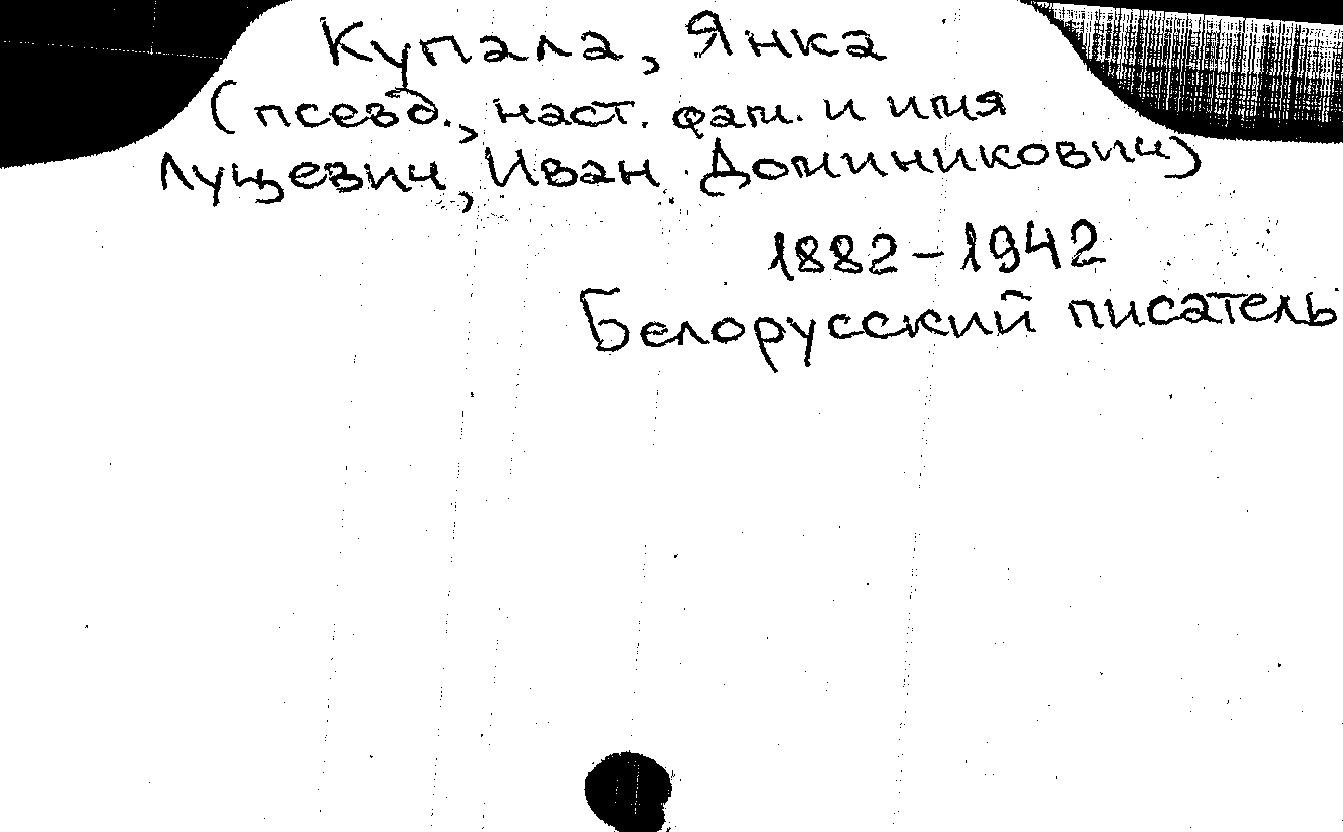 Купала, Янка
(псевд., наст. фам. и имя
Луцевич, Иван Доминикович)
1882-1942
Белорусский писатель